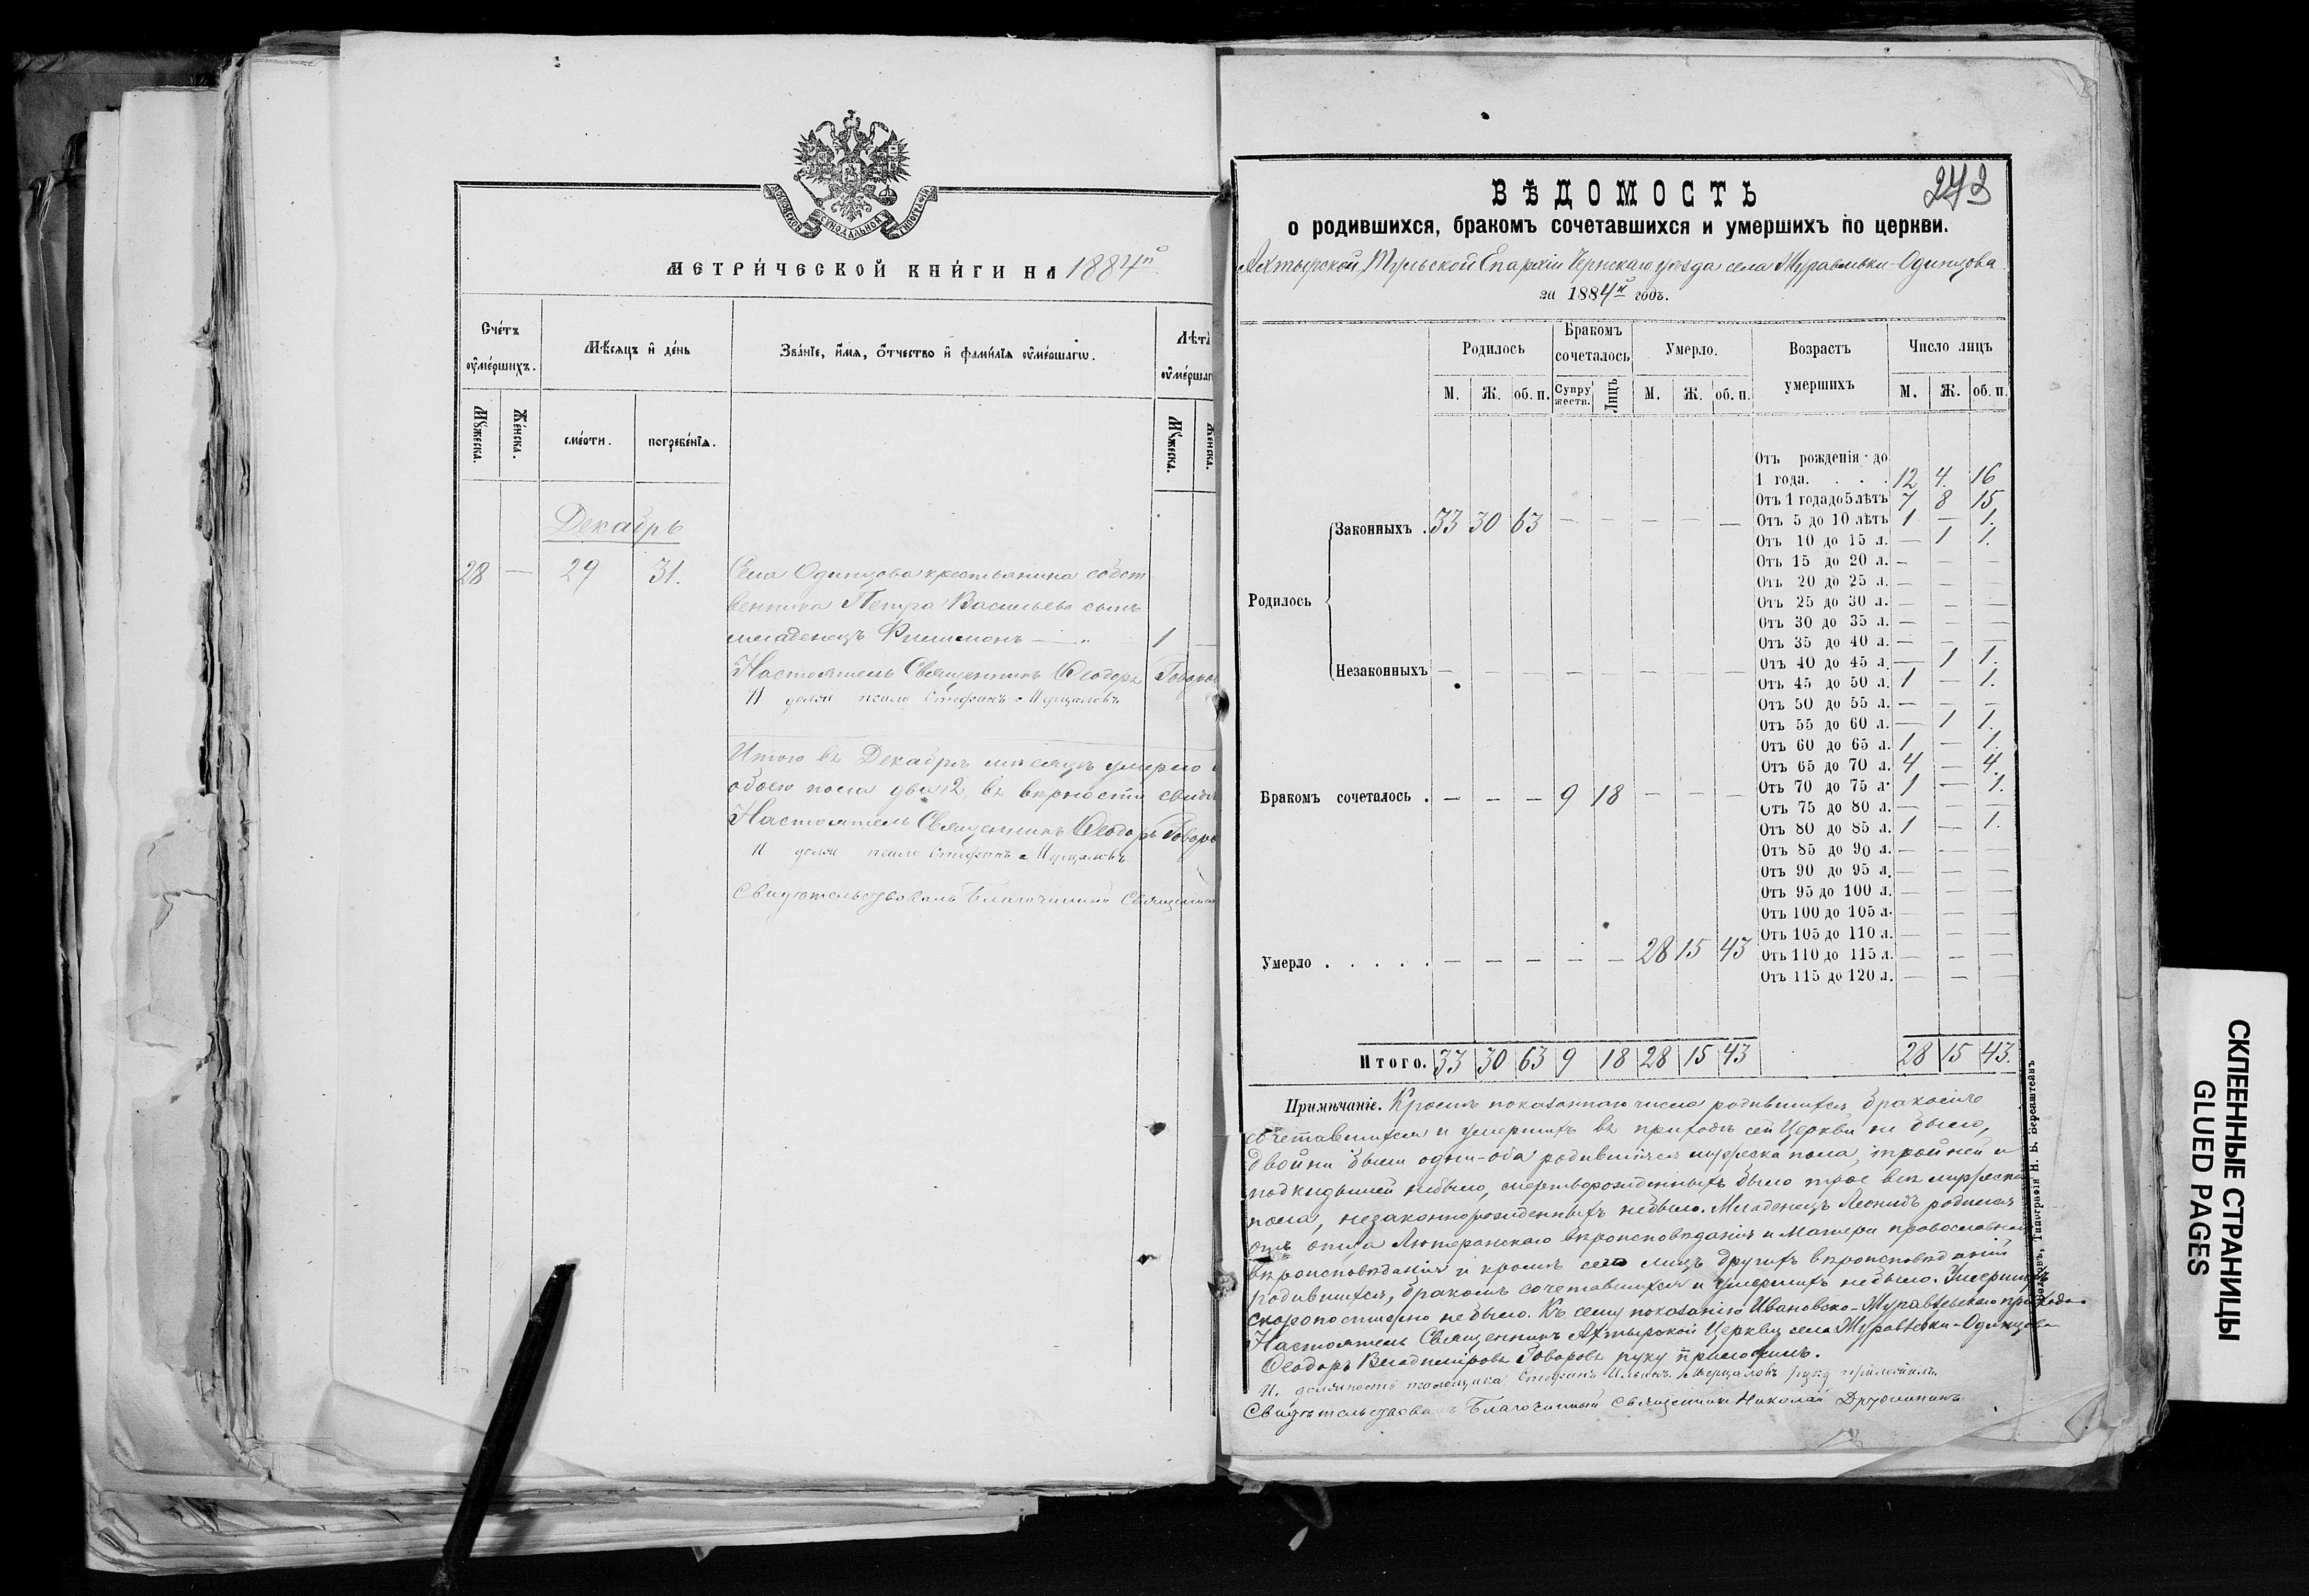 МОСКОВСКОЙ СѴНОДАЛЬНОЙ ТИПОГРАФІИ
МЕТРИ́ЧЕСКОЙ КНИ́ГИ НА 1884й
Сче́тъ оу҆ме́ршихъ.
Мѣ́сяцъ и҆ де́нь
Зва́нїе, и҆́мѧ, ѻ҆́тчество и҆ фами́лїѧ оу҆ме́ршагѡ.
Лѣта̀
оу҆ме́ршаг
Мꙋ́жеска.
Же́нска.
сме́рти.
погребе́нїѧ.
Мꙋ́жеска.
Же́нска.
Декабрь
28 — 29 31. Села Одинцова крестьянина собст
венника Петра Васильева сынъ
младенецъ Филимонъ — „ 1 —
Настоятель Священникъ Ѳеодоръ Говоров
И долж псалом Стефанъ Мерцаловъ
Итого въ Декабрѣ мѣсяцѣ умерло
обоего пола два 2, въ вѣрности свидѣ
Настоятель Священникъ Ѳеодоръ Говоро
И долж псалом Стефанъ Мерцаловъ
Свидѣтельствовалъ Благочинный Священник
273
ВѢДОМОСТЬ
о родившихся, бракомъ сочетавшихся и умершихъ по церкви.
Ахтырской, Тульской Епархіи Чернскаго уѣзда села Муравлевки-Одинцова
за 1884й годъ.
Родилось
Бракомъ сочеталось
Умерло.
Возрастъ умершихъ
Число лицъ
М. Ж. об. п. Супружеств. Лицъ М. Ж. об. п. М. Ж. об. п.
Отъ рожденія до
1 года. . . . 12 4. 16
Отъ 1 года до 5 лѣтъ 7 8 15
Родилось
Законныхъ . 33 30 63 — — — — —
Отъ 5 до 10 лѣтъ 1 — 1.
Отъ 10 до 15 л. — 1 1.
Отъ 15 до 20 л. — — —
Отъ 20 до 25 л. — — —
Отъ 25 до 30 л. — — —
Отъ 30 до 35 л. — — —
Отъ 35 до 40 л. — — —
Незаконныхъ — — — — — — — —
Отъ 40 до 45 л. — 1 1.
Отъ 45 до 50 л. 1 — 1.
Отъ 50 до 55 л. — — —
Отъ 55 до 60 л. — 1 1.
Отъ 60 до 65 л. 1 — 1.
Отъ 65 до 70 л. 4 — 4.
Бракомъ сочеталось . — — — 9 18 — — —
Отъ 70 до 75 л. 1 — 1.
Отъ 75 до 80 л. — — —
Отъ 80 до 85 л. 1 — 1.
Отъ 85 до 90 л. — — —
Отъ 90 до 95 л. — — —
Отъ 95 до 100 л. — — —
Отъ 100 до 105 л. — — —
Отъ 105 до 110 л. — — —
Умерло . . . . . — — — — — 28 15 43
Отъ 110 до 115 л. — — —
Отъ 115 до 120 л. — —
Итого. 33 30 63 9 18 28 15 43 28 15 43.
Примѣчаніе. Кромѣ показаннаго числа родившихся, бракомъ
сочетавшихся и умершихъ въ приходѣ сей Церкви не было,
двойни были одни-оба родившіеся мужеска пола, тройней и
подкидышей небыло, мертворожденныхъ было трое всѣ мужеска
пола, незаконнорожденныхъ небыло. Младенецъ Леонидъ родился
отъ отца Лютеранскаго вѣроисповѣданія и Матери православнаго
вѣроисповѣданія и кромѣ сего лицъ другихъ вѣроисповѣданій
родившихся, бракомъ сочетавшихся и умершихъ небыло. Умершихъ
скоропостижно небыло. Къ сему показанію Ивановско-Муравлевскаго прихода
Настоятель Священникъ Ахтырской Церкви села Муравлевки-Одинцова
Ѳеодоръ Владиміровъ Говоровъ руку приложилъ.
И. должность псаломщика Стефанъ Ильинъ Мерцаловъ руку приложилъ.
Свидѣтельствова Благочинный Священникъ Николай
Типографія Н. Б. Беренштейнъ
СКЛЕЕННЫЕ СТРАНИЦЫ
GLUED PAGES